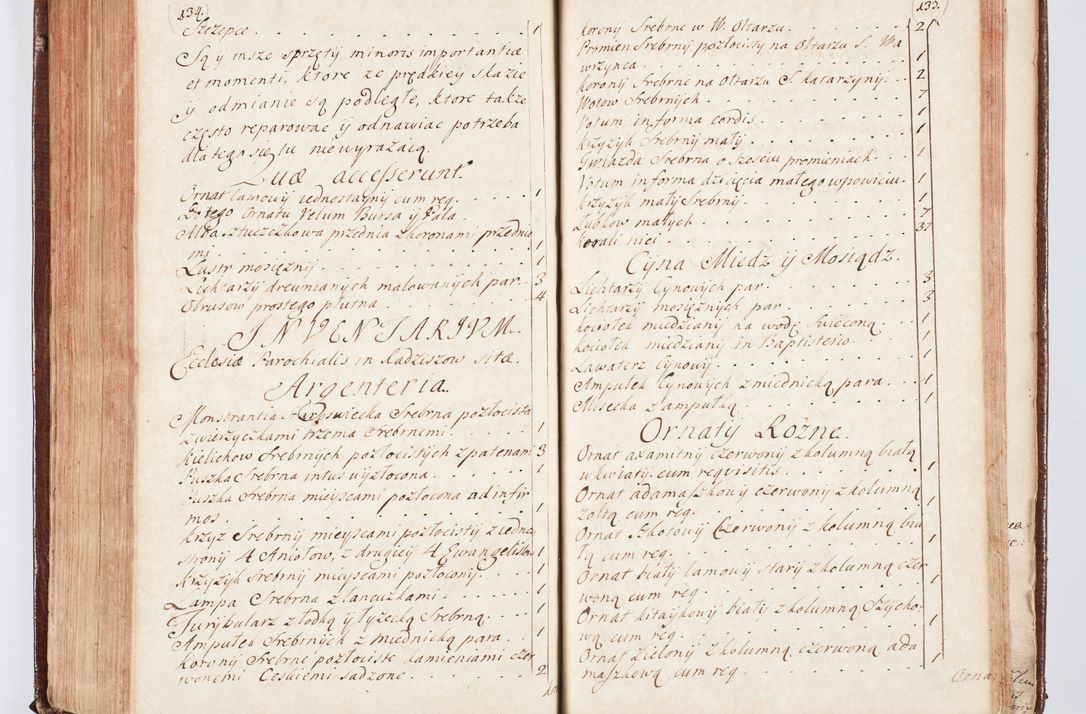 134.
Szczepce . . . . . 1
Są ÿ insze sprzęty minoris importantiæ
et momenti, ktore ze prędkieÿ skazie
ÿ odmianie są podległe, ktore także
często reparować ÿ odnawiać potrzeba
dlatego się tu niewyrażaią.
Quæ accesserunt.
Ornat lamowÿ iednostaynÿ cum req. . . . 1
Do tego Ornatu Velum Bursa ÿ Pala . . . 1
Alba sztuczkowa przednia z koronam̃ przednie
mi . . . . . 1
Lustr mosięznÿ . . . . . 1
Lichtarzÿ drewnianÿch malowanÿch par . . 3
Obrusow prostego płutna . . . . 4
INVENTARIUM
Ecclesiæ Parochialis in Radziszow sitæ.
Argenteria.
Monstrantia Srebrna pozłocista
z wieżÿczkami trzema srebrnemi . . . 1
Kielichow Srebrnÿch pozłocistÿch z patenam̃ 3
Puszka Srebrna intus wÿzłocona . . . 1
Puszka Srebrna mieÿscami pozłocona ad infir
mos . . . . . 1
Krzÿż Srebrnÿ mieÿscami pozłocistÿ z iedneÿ
stronÿ 4 Aniołow, z drugieÿ 4 Ewangelistow 1
Krzÿżÿk Srebrnÿ mieÿscami pozłoconÿ . . . 1
Lampa Srebrna z łancuzkami . . . . 1
Turÿbularz z łodką ÿ łÿżecką Srebrną . . . 1
Ampułek Srebrnÿch z miednicką para . . . 1
Koronÿ Srebrne pozłociste kamieniami czer
wonemi Czeskiemi sadzone . . . . 2
133.
Koronÿ Srebrne w W. Ołtarzu . . . . 2
Promien Srebrnÿ pozłocistÿ na Ołtarzu S. Wa
wrzÿnca . . . . . 1
Koronÿ Srebrne na Ołtarzu S. Katarzÿnÿ . . 2
Wotow Srebrnÿch . . . . . 7
Votum in forma cordis . . . . 1
Krzÿżÿk Srebrnÿ małÿ . . . . 1
Gwiazda Srebrna o szesciu promieniach . . . 1
Votum in forma dziecięcia małego w powiciu . 1
Krzÿżÿk małÿ Srebrnÿ . . . . 1
Lubkow małÿch . . . . . 7
Korali nici . . . . . 37
Cÿna Miedz ÿ Mosiądz.
Lichtarzÿ Cÿnowÿch par . . . . 3
Lichtarzÿ mosięznÿch par . . . . 3
Kociołek miedzianÿ na wodę Swięconą . . . 1
Kociołek miedzianÿ in Baptisterio . . . 1
Lawaterz Cÿnowÿ . . . . . 1
Ampułek Cÿnowÿch z miednicką para . . . 1
Misecka z ampułką . . . . 1
Ornatÿ Rożne.
Ornat axamitnÿ czerwonÿ z kolumną białą
w kwiatÿ cum requisitis . . . . 1
Ornat adamaszkowÿ czerwonÿ z kolumną
żołtą cum req. . . . . 1
Ornat Czerwonÿ z kolumną bia
łą cum req. . . . . 1
Ornat białÿ lamowÿ starÿ z kolumną czer
woną cum req. . . . . 1
Ornat kitaÿkowÿ białÿ z kolumną Szÿcho
wą cum req. . . . . 1
Ornat Zielonÿ z kolumną czerwoną ada
maszkową cum req. . . . . 1
Ornat